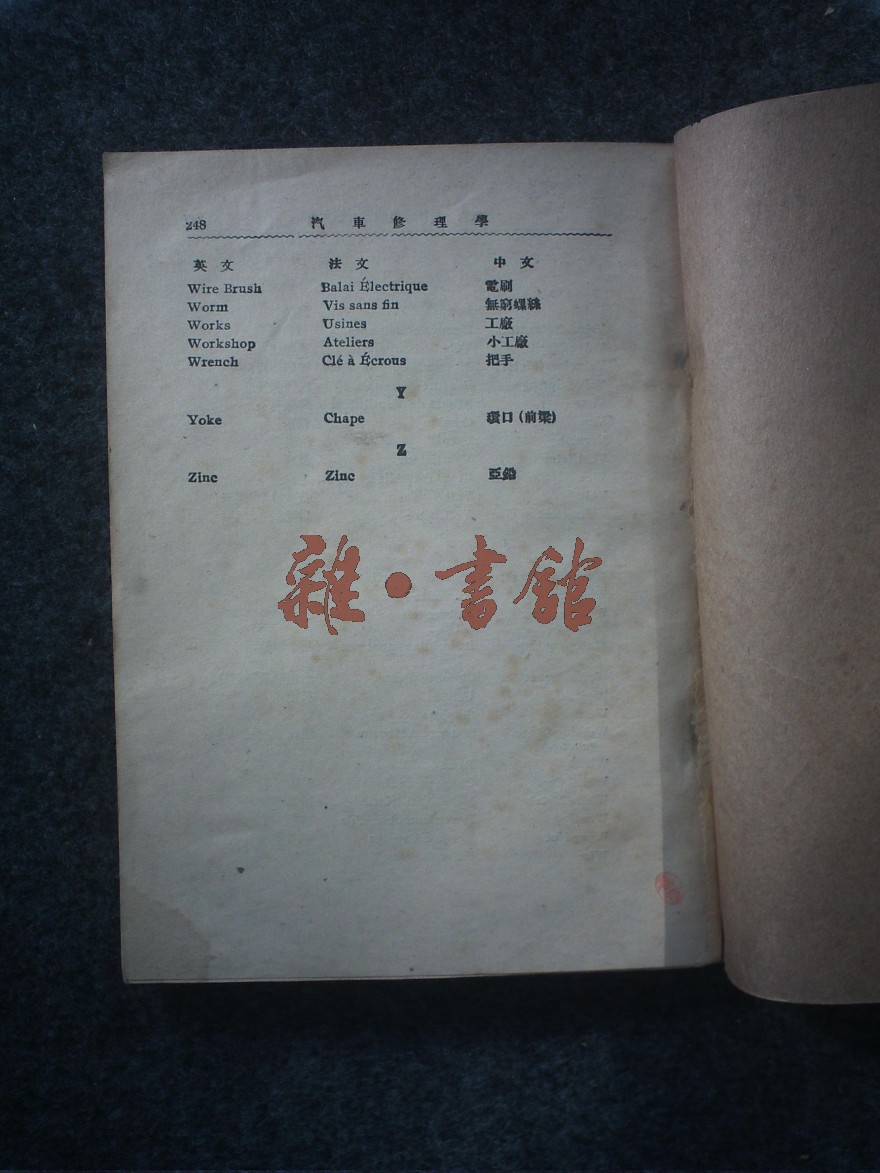 248 汽車修理學
英文 法文 中文
Wire Brush Balai Électrique 電刷
Worm Vis sans fin 無窮螺絲
Works Usines 工廠
Workshop Ateliers 小工廠
Wrench Clé à Écrous 把手
Y
Yoke Chape 口(前梁)
Z
Zinc Zinc 亞鉛
雜•書館